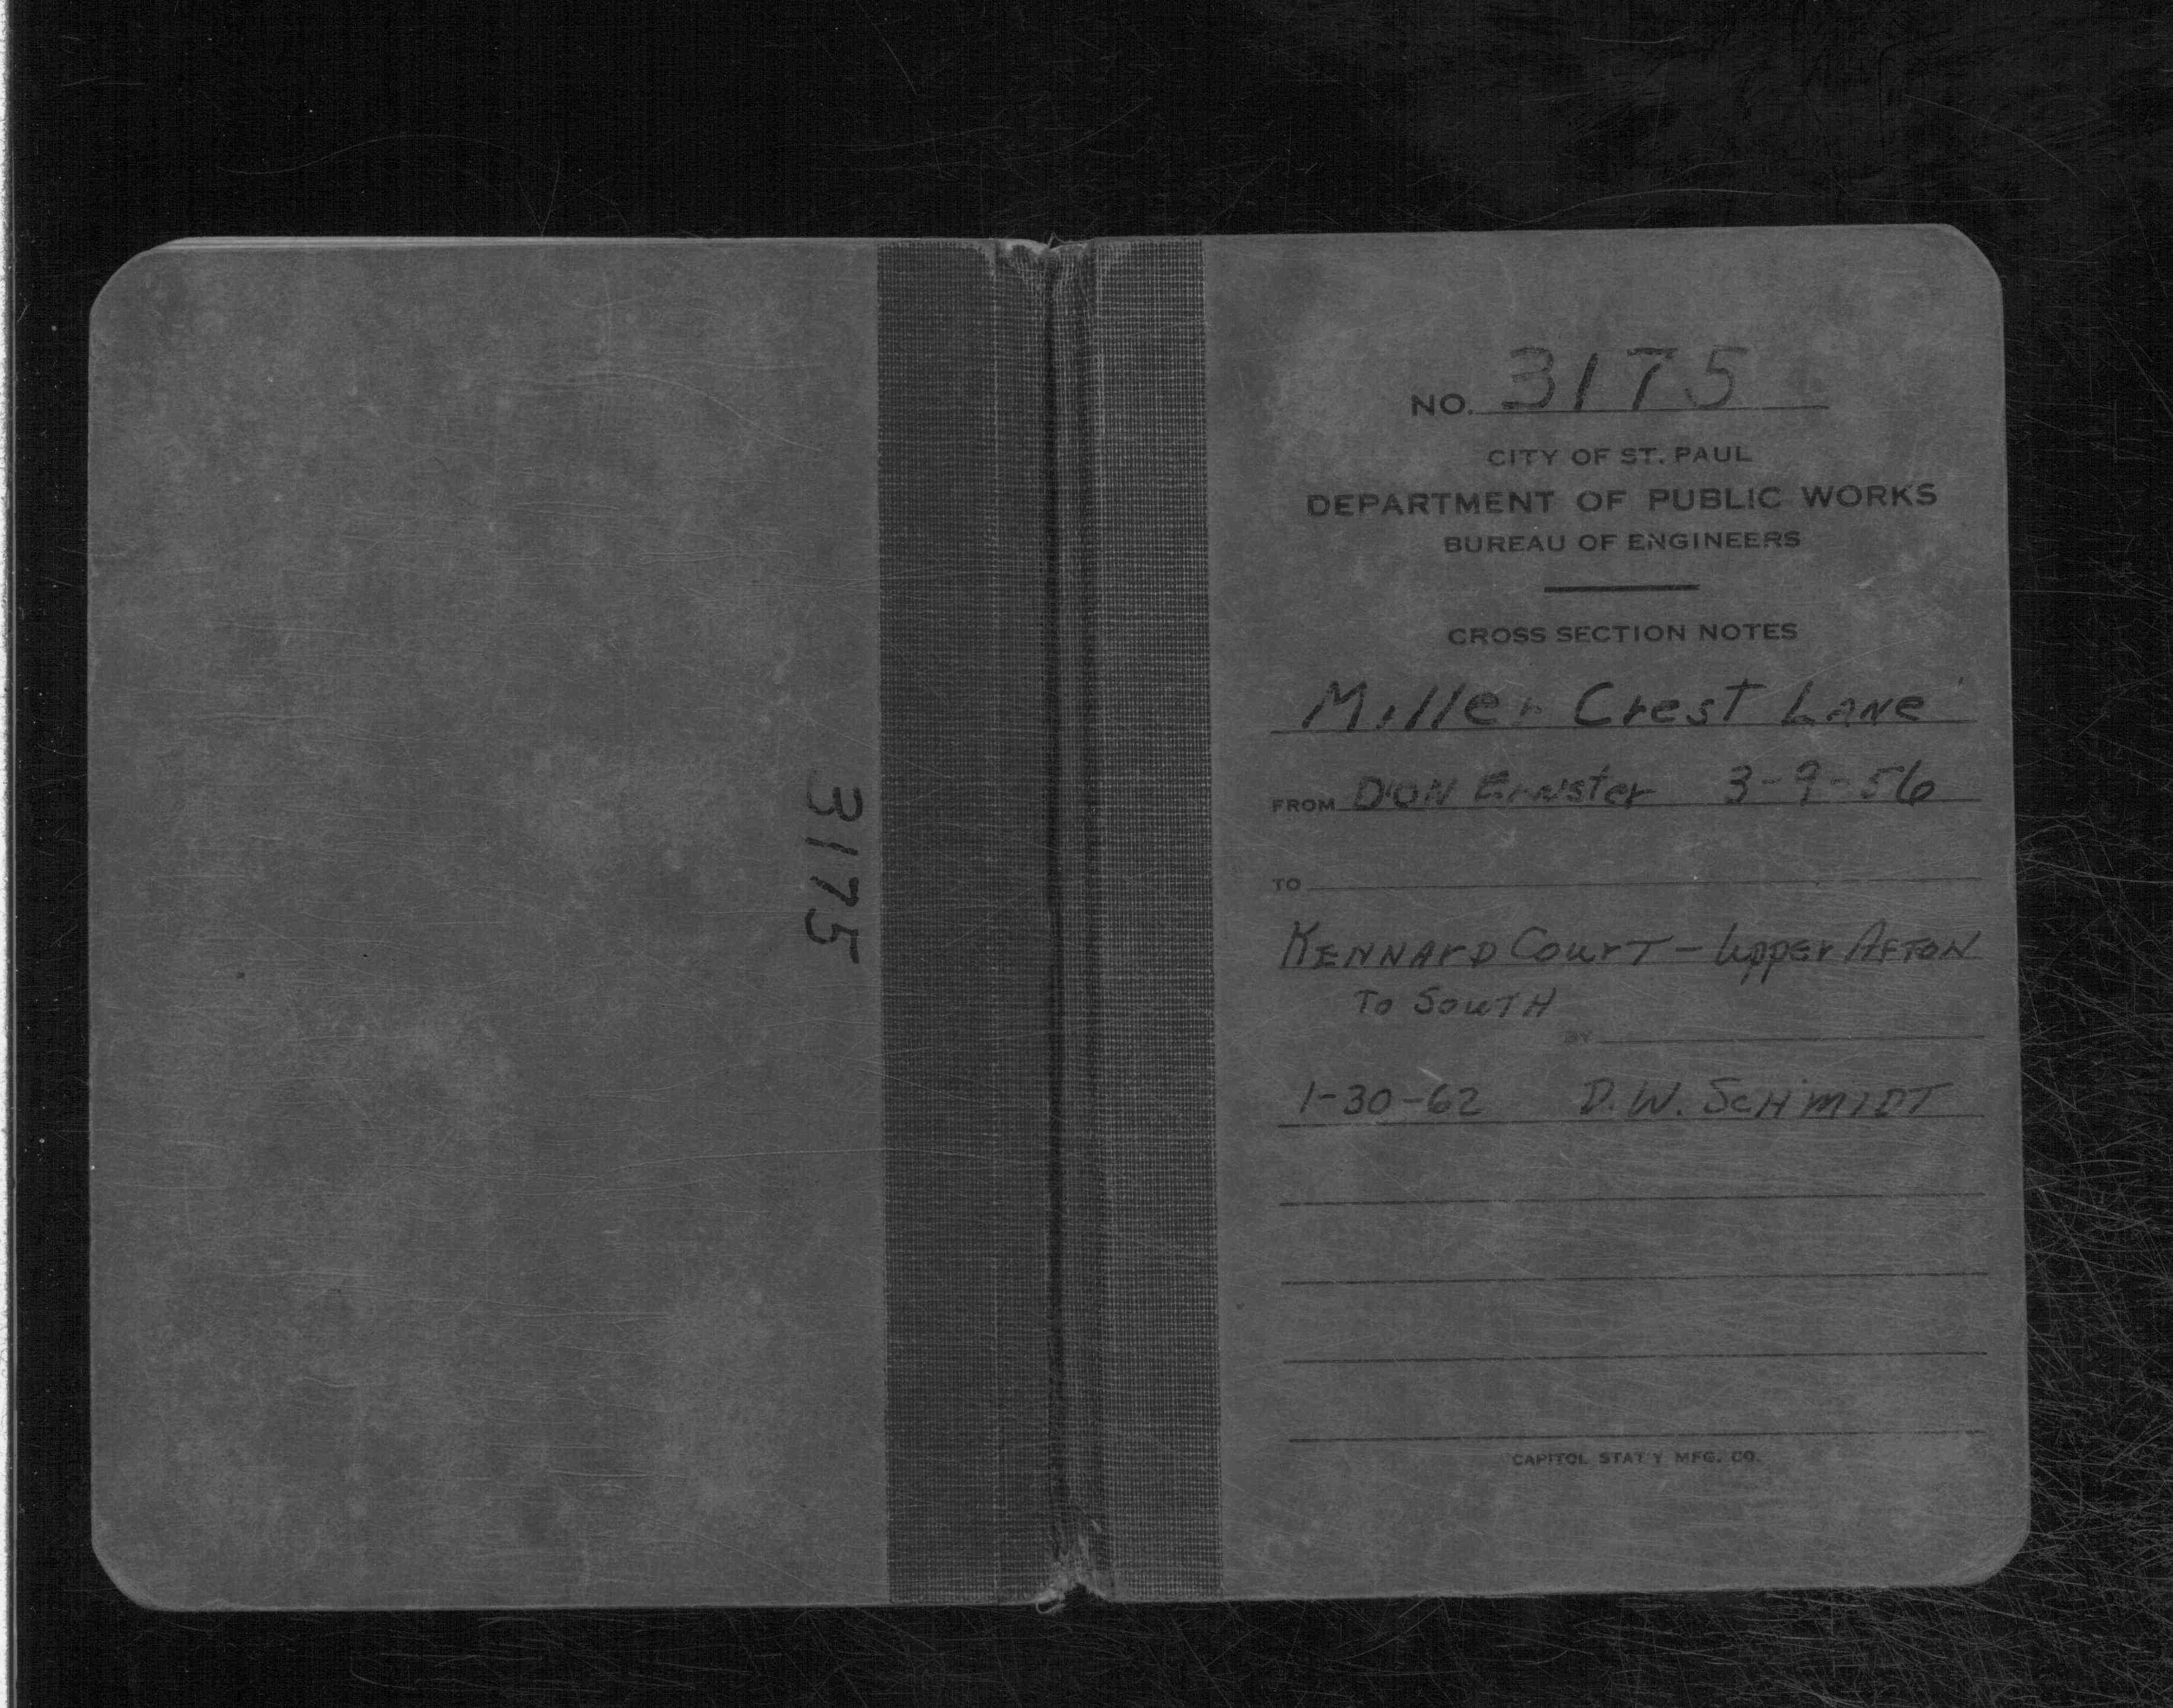 3175
NO. 3175
CITY OF ST. PAUL
DEPARTMENT OF PUBLIC WORKS
BUREAU OF ENGINEERS
CROSS SECTION NOTES
Miller Crest LANE
FROM DON Ernster 3-9-56
TO
KENNARD COURT - Upper AFTON
To SOUTH
BY
1-30-62 D.W. SCHMIDT
CAPITOL STAT'Y MFG. CO.